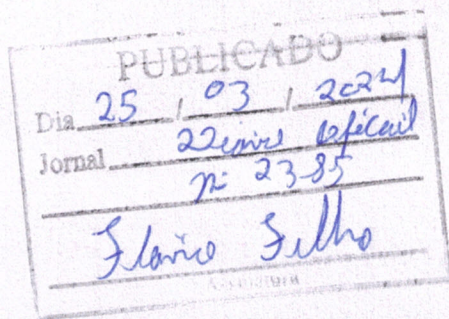 PUBLICADO
Dia 25 / 03 / 2024
Jornal Diário Oficial
nº 2385
Flavio Filho
Assinatura